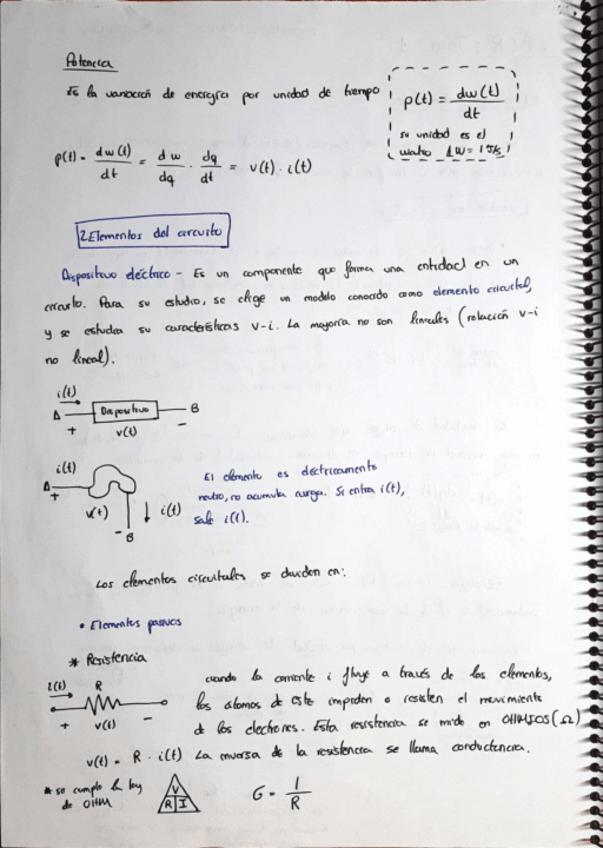 Potencia
Es la variación de energía por unidad de tiempo
p(t) = dw(t)/dt
su unidad es el
watio 1W = 1 J/s
p(t) = dw(t)/dt = dw/dq · dq/dt = v(t) · i(t)
2. Elementos del circuito
Dispositivo eléctrico - Es un componente que forma una entidad en un
circuito. Para su estudio, se elige un modelo conocido como elemento circuital,
y se estudia su características v-i. La mayoría no son lineales (relación v-i
no lineal).
i(t)
A Dispositivo B
+ v(t) -
i(t)
A
+
v(t) i(t)
- B
El elemento es eléctricamente
neutro, no acumula carga. Si entra i(t),
sale i(t).
Los elementos circuitales se dividen en:
• Elementos pasivos
* Resistencia
i(t) R
+ v(t) -
cuando la corriente i fluye a través de los elementos,
los átomos de este impiden o resisten el movimiento
de los electrones. Esta resistencia se mide en OHMIOS (Ω)
v(t) = R · i(t) La inversa de la resistencia se llama conductancia.
* se cumple la ley
de OHM
V
R I
G = 1/R